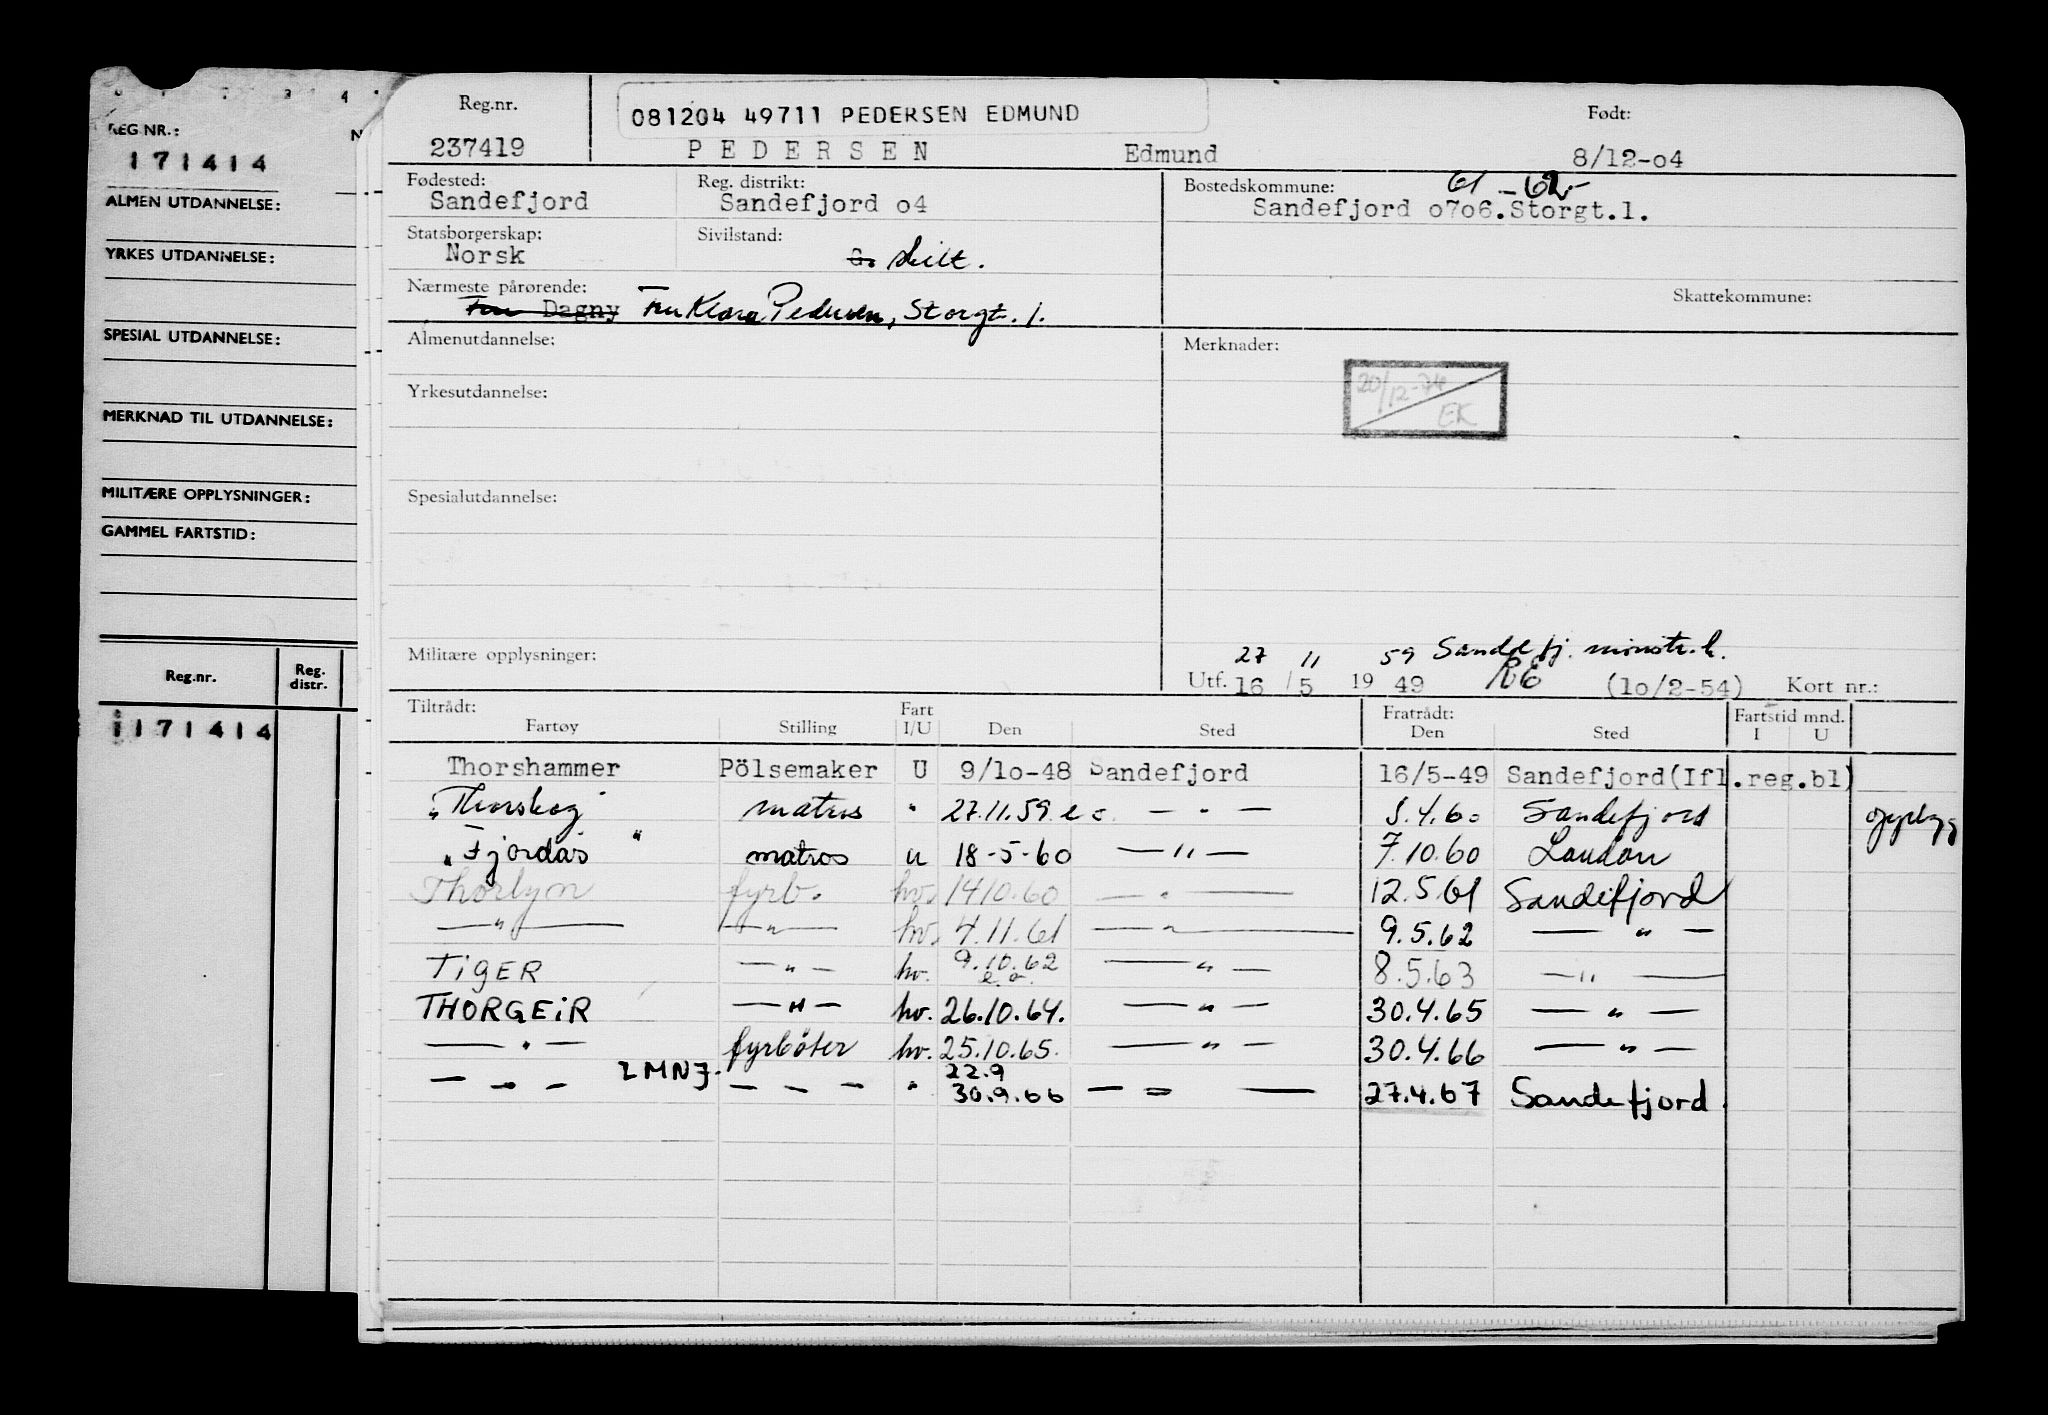 REG NR.:
171414
ALMEN UTDANNELSE:
YRKES UTDANNELSE:
SPESIAL UTDANNELSE:
MERKNAD TIL UTDANNELSE:
MILITÆRE OPPLYSNINGER:
GAMMEL FARTSTID:
Reg.nr. Reg. distr.
171414
Reg.nr. 081204 49711 PEDERSEN EDMUND Født:
237419 PEDERSEN Edmund 8/12-o4
Fødested: Reg. distrikt: Bostedskommune: 61 - 62-
Sandefjord Sandefjord o4 Sandefjord o7o6.Storgt.1.
Statsborgerskap: Sivilstand:
Norsk G. skilt.
Nærmeste pårørende: Skattekommune:
Fru Dagny Fru Klara Pedersen, Storgt. 1.
Almenutdannelse: Merknader:
20/12-74 EK
Yrkesutdannelse:
Spesialutdannelse:
Militære opplysninger: 27 11 59 Sandefj. mønstr.k.
Utf. 16 / 5 19 49 (1o/2-54) Kort nr.:
Tiltrådt: Fart Fratrådt: Fartstid mnd.
Fartøy Stilling I/U Den Sted Den Sted I U
Thorshammer Pölsemaker U 9/1o-48 Sandefjord 16/5-49 Sandefjord(Ifl.reg.bl)
"Thorskog" matros " 27.11.59. — " — .4.60 Sandefjord opplegg
"Fjordås" matros u 18-5-60 — " — 7.10.60 London
Thorlyn fyrb. hv. 14.10.60 — " — 12.5.61 Sandefjord
— " — — " — hv. 4.11.61 — " — 9.5.62 — " —
TiGER — " — hv. 9.10.62 — " — 8.5.63 — " —
THORGEiR — " — hv. 26.10.64. — " — 30.4.65 — " —
— " — fyrbøter hv. 25.10.65. — " — 30.4.66 — " —
— " — LMNJ. — " — " 22.9 30.9.66 — " — 27.4.67 Sandefjord.